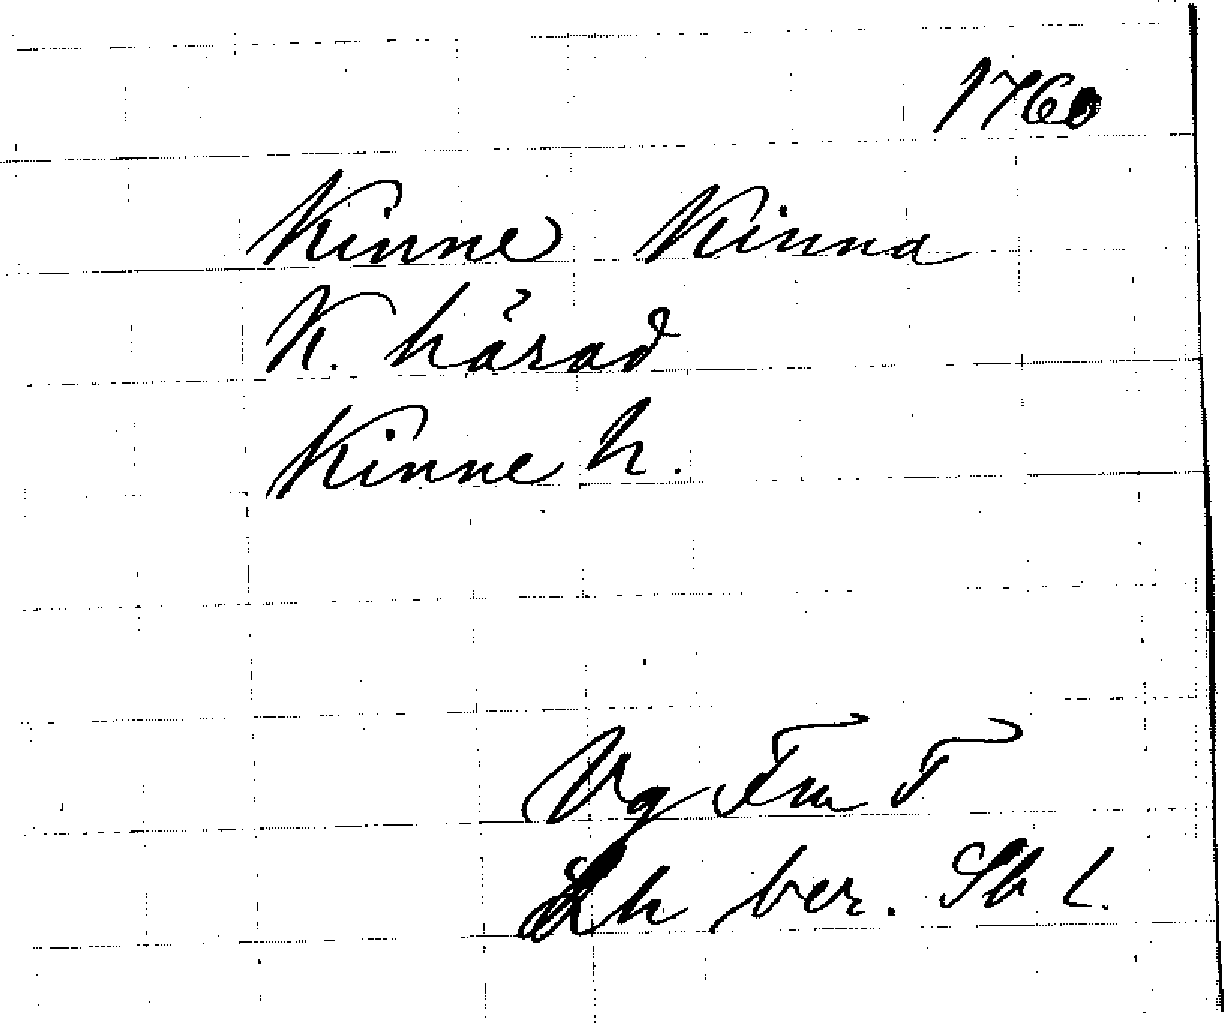 1760
Kinne Kinna
K. härad
Kinne h.
Vg Fm T
Lh ber. Sb l.